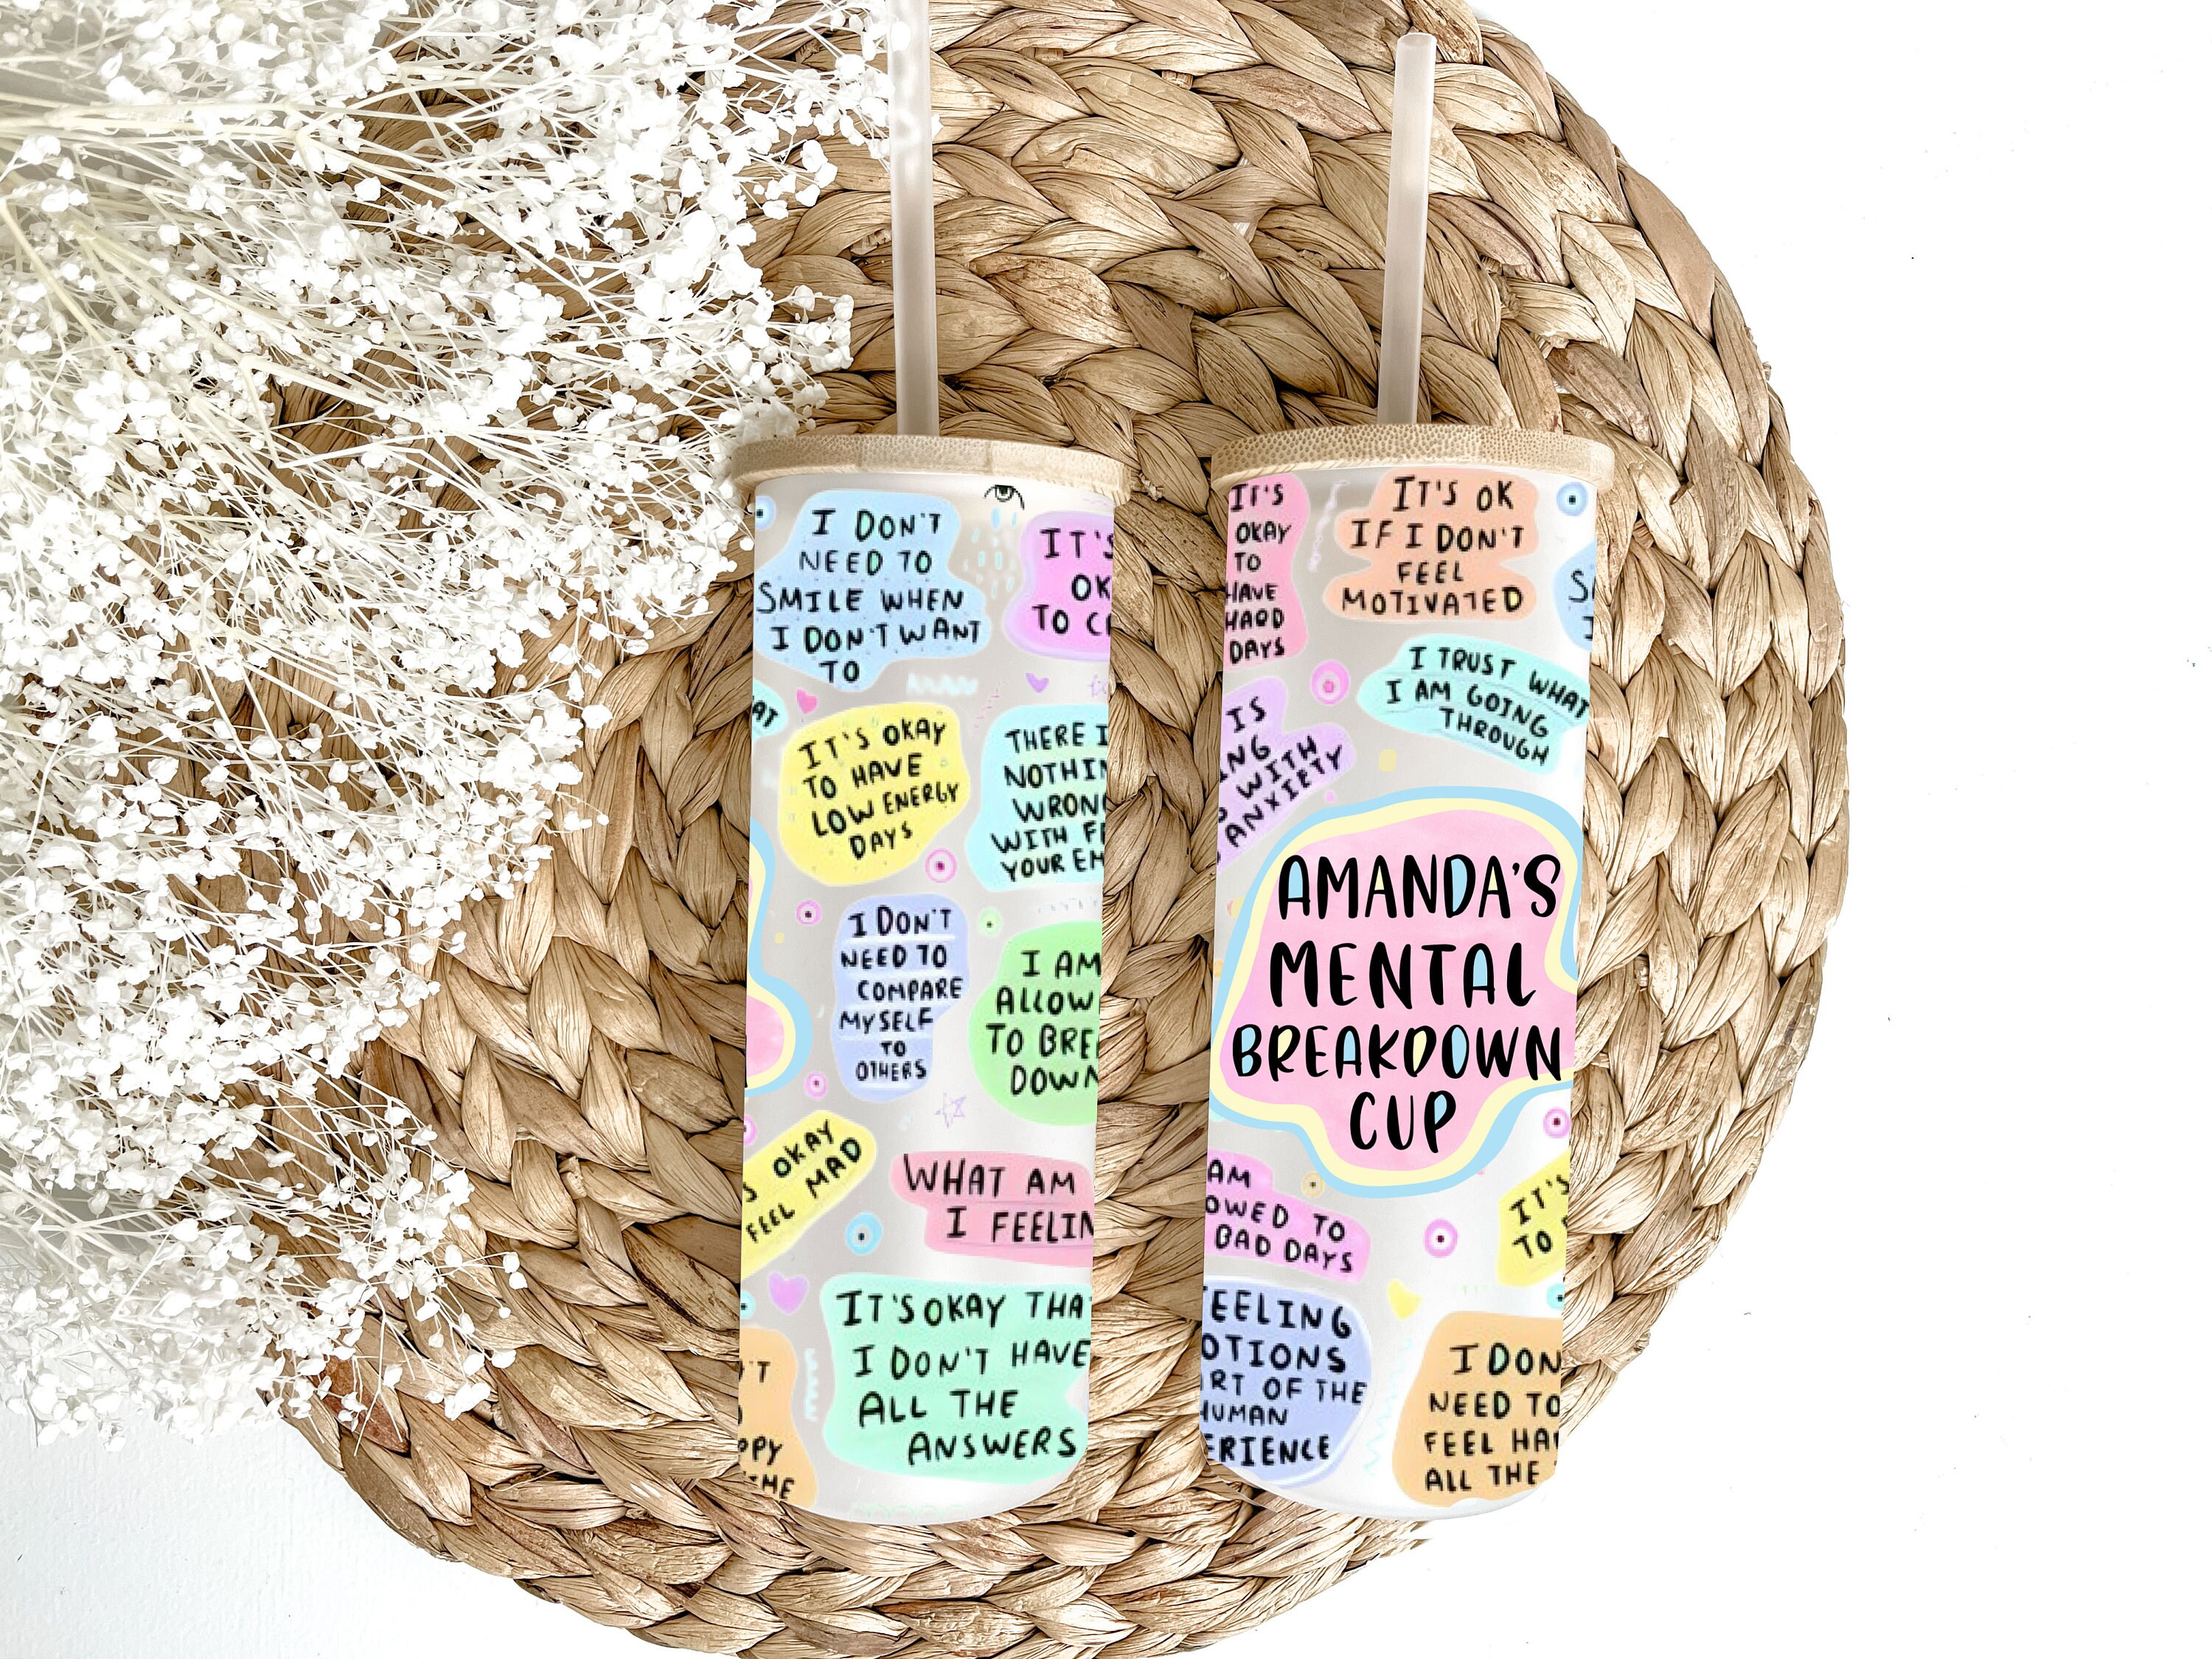 I DON'T
NEED TO
SMILE WHEN
I DON'T WANT
TO
IT'S
OK
TO
IT'S OKAY
TO HAVE
LOW ENERGY
DAYS
THERE
WITH
YOUR
I DON'T
NEED TO
COMPARE
MYSELF
TO
OTHERS
I AM
ALLOW
TO BRE
DOWN
OKAY
FEEL MAD
WHAT AM
I FEELIN
IT'S OKAY THA
I DON'T HAVE
ALL THE
ANSWERS
IT'S
OKAY
TO
HAVE
HARD
DAYS
IT'S OK
IF I DON'T
FEEL
MOTIVATED
I TRUST WHAT
I AM GOING
THROUGH
IS
WITH
ANXIETY
AMANDA'S
MENTAL
BREAKDOWN
CUP
AM
OWED TO
BAD DAYS
IT'S
TO
EELING
OTIONS
RT OF THE
HUMAN
ERIENCE
I DON
NEED TO
FEEL HA
ALL THE